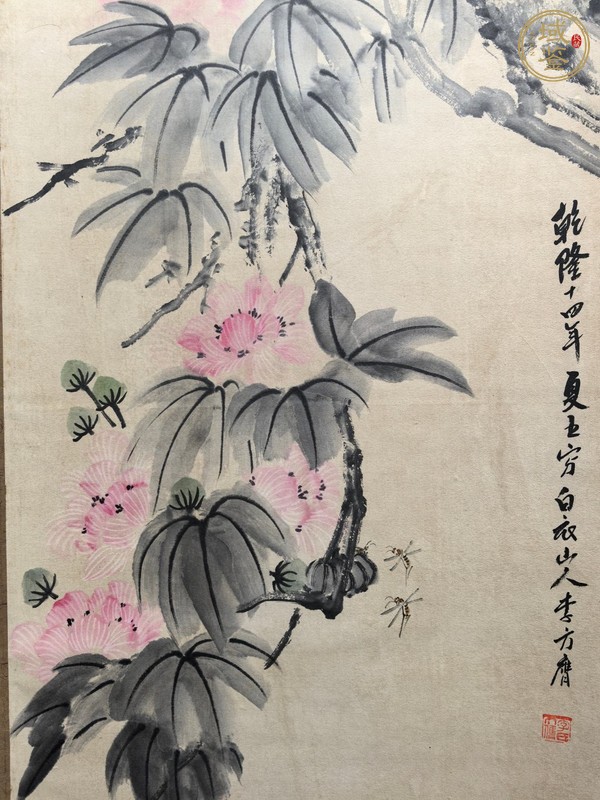 乾隆十四年夏五穷白衣山人李方膺